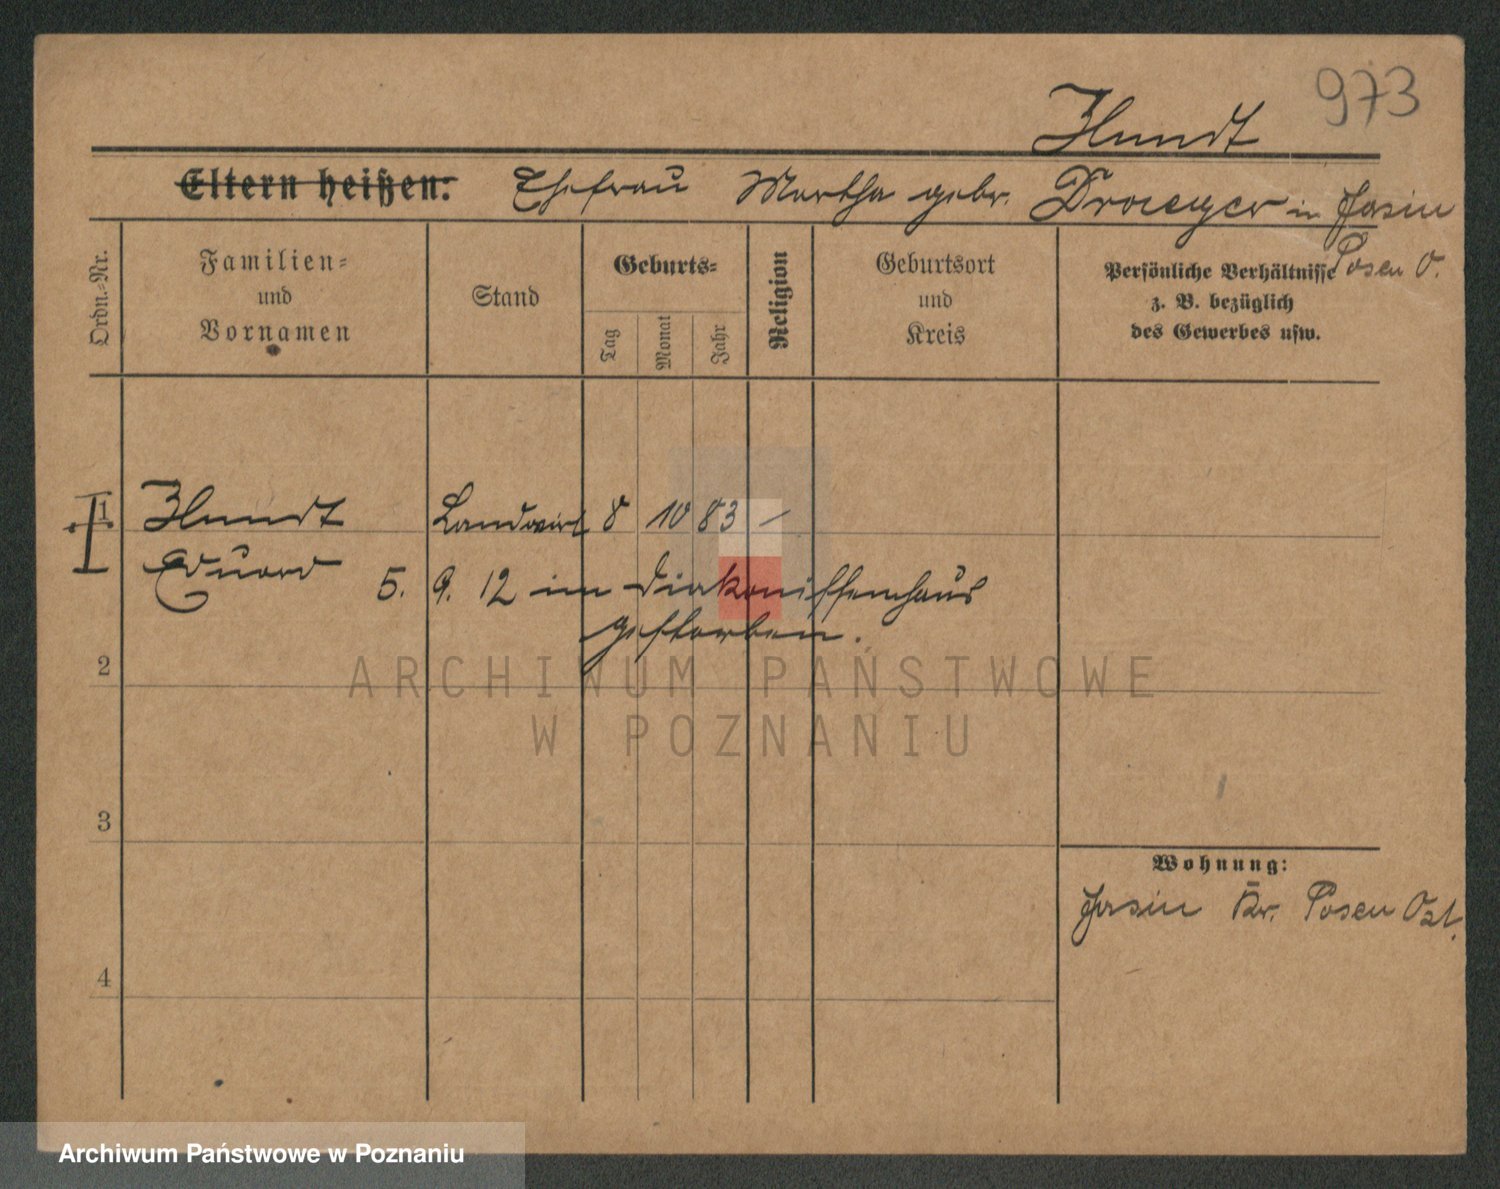 973
Hundt
Eltern heißen: Ehefrau Martha gebr. Draeger in Jasin
Posen O.
Ordn.-Nr.
Familien-
und
Vornamen
Stand
Geburts-
Tag
Monat
Jahr
Religion
Geburtsort
und
Kreis
Persönliche Verhältnisse
z. B. bezüglich
des Gewerbes usw.
1 Hundt Landwirt 8 10 83 –
Eduard 5. 9. 12 im Diakonissenhaus
gestorben.
2
ARCHIWUM PAŃSTWOWE
W POZNANIU
3
Wohnung:
Jasin Kr. Posen Ost.
4
Archiwum Państwowe w Poznaniu